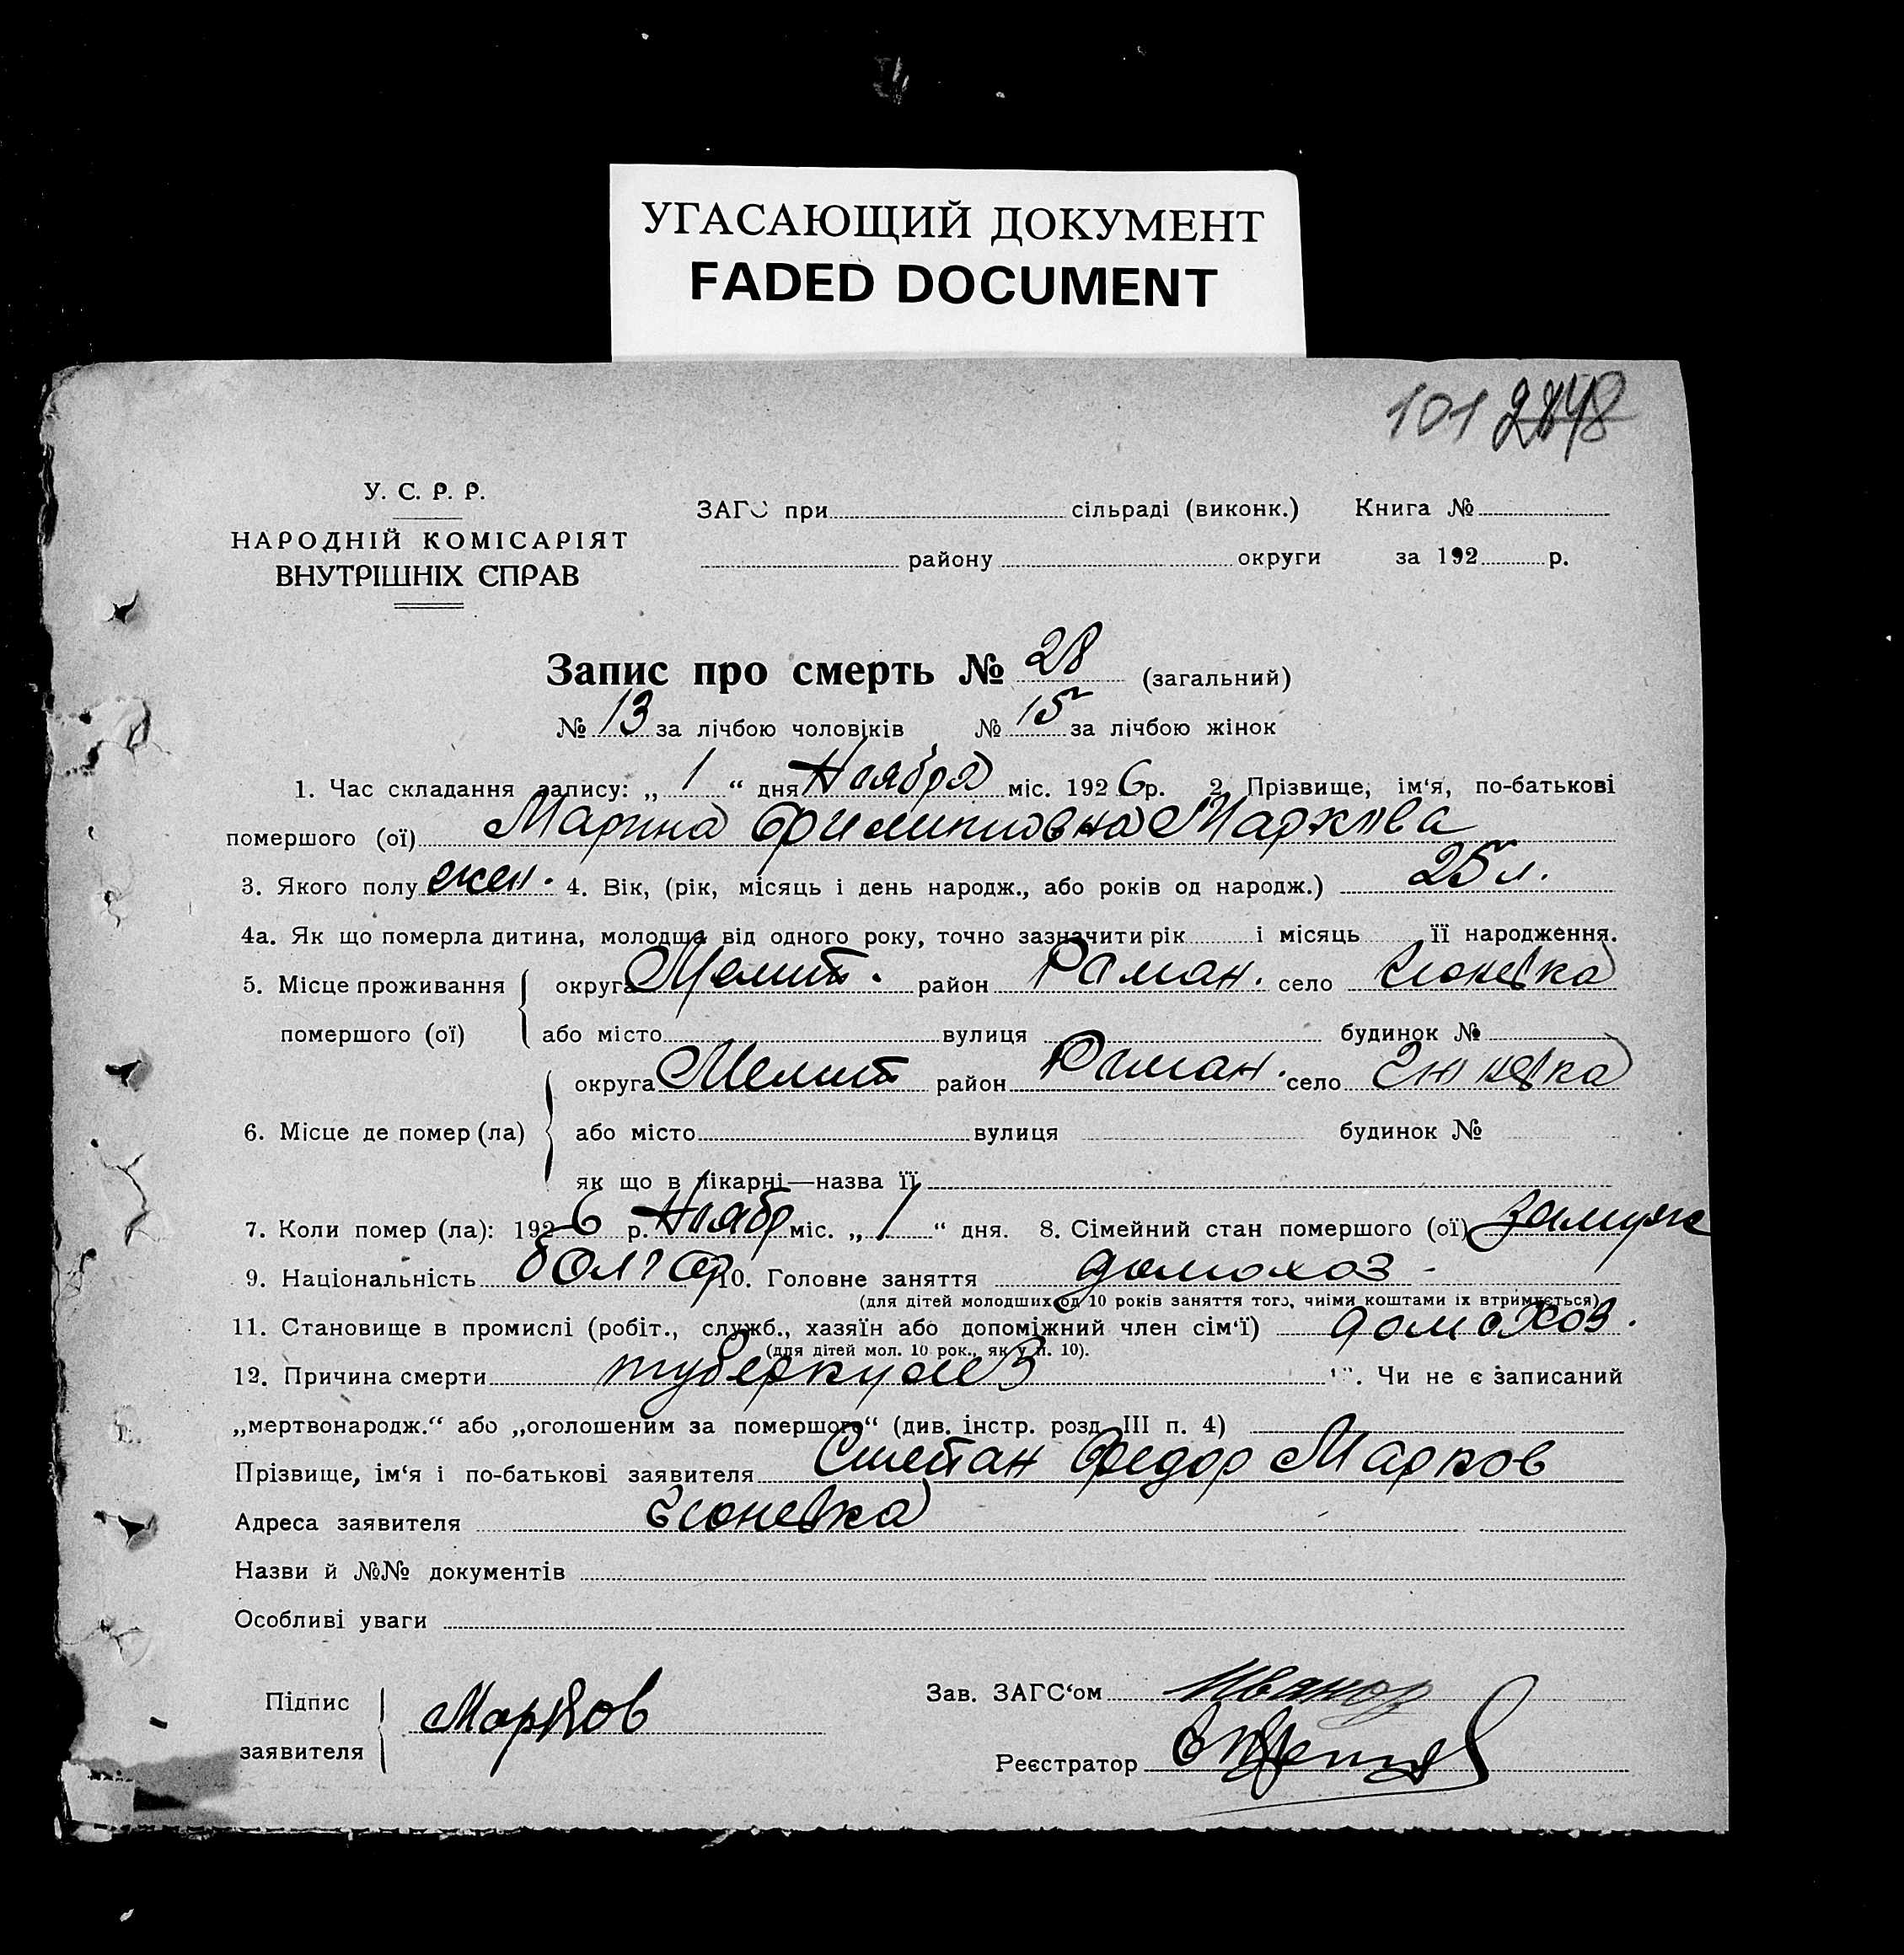 УГАСАЮЩИЙ ДОКУМЕНТ
FADED DOCUMENT
101 2848
У. С. Р. Р.
НАРОДНІЙ КОМІСАРІЯТ
ВНУТРІШНІХ СПРАВ
ЗАГС при сільраді (виконк.) Книга №
району округи за 192 р.
Запис про смерть № 28 (загальний)
№ 13 за лічбою чоловіків № 15 за лічбою жінок
1. Час складання запису: „ 1 “ дня Ноября міс. 1926 р. 2. Прізвище, ім‘я, по-батькові
помершого (ої) Марина Филипповна Маркова
3. Якого полу жен. 4. Вік, (рік, місяць і день народж., або років од народж.) 25 л.
4а. Як що померла дитина, молодща від одного року, точно зазначити рік і місяць її народження.
5. Місце проживання округа Мелит. район Роман. село
помершого (ої) або місто вулиця будинок №
округа Мелит район Роман. село
6. Місце де помер (ла) або місто вулиця будинок №
як що в лікарні—назва її
7. Коли помер (ла): 1926 р. Ноябр міс. „ 1 “ дня. 8. Сімейний стан помершого (ої) замуж
9. Національність болгар 10. Головне заняття домохоз
(для дітей молодших од 10 років заняття того, чиїми коштами їх втримується)
11. Становище в промислі (робіт., служб., хазяїн або допоміжний член сім‘ї) домохоз.
(для дітей мол. 10 рок., як у п. 10).
12. Причина смерти туберкулез . Чи не є записаний
„мертвонародж.“ або „оголошеним за помершого“ (див. інстр. розд. III п. 4)
Прізвище, ім‘я і по-батькові заявителя Степан Федор Марков
Адреса заявителя
Назви й №№ документів
Особливі уваги
Підпис заявителя Марков
Зав. ЗАГС‘ом Иванов
Реєстратор